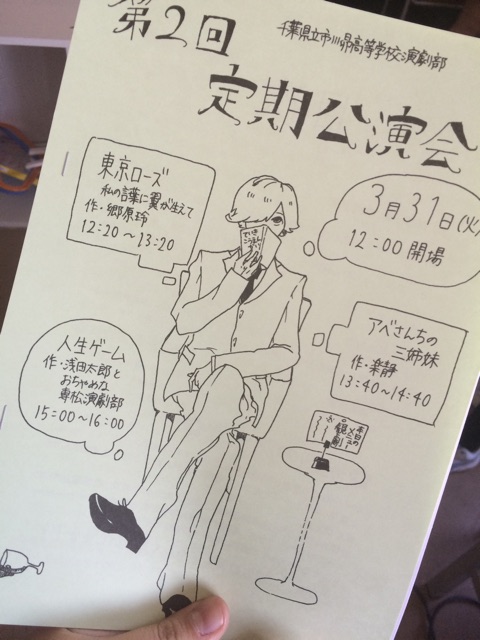 第2回
千葉県立市川昴高等学校演劇部
定期公演会
東京ローズ
私の言葉に翼が生えて
作・郷原玲
12:20〜13:20
3月31日(火)
12:00 開場
アベさんちの
三姉妹
作・楽静
13:40〜14:40
人生ゲーム
作・浅田太郎と
おちゃめな
専松演劇部
15:00〜16:00
ていき
こうえん
本日の
メニュー
観劇